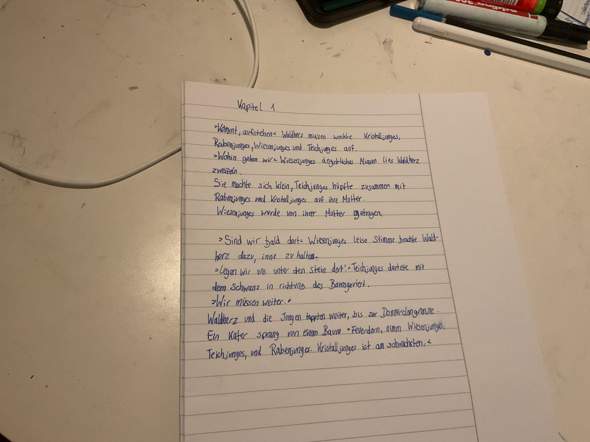 Kapitel 1
»Kommt, aufstehen« Waldherz miauen weckte Kristalljunges,
Rabenjunges, Wiesenjunges und Teichjunges auf.
»Wohin gehen wir« Wiesenjunges ängstliches Miauen lies Waldherz
zweifeln.
Sie machte sich klein, Teichjunges hüpfte zusammen mit
Rabenjunges und Kristalljunges auf ihre Mutter
Wiesenjunges wurde von ihrer Mutter getragen.
»Sind wir bald dort« Wiesenjunges leise Stimme brachte Wald-
herz dazu, inne zu halten.
»Legen wir uns unter den Stein dort« Teichjunges deutete mit
dem Schwanz in richtung des
»Wir müssen weiter.«
Waldherz und die Jungen tappten weiter, bis zur
Ein Kater sprang von einem Baum »Federdorn, nimm Wiesenjunges,
Teichjunges, und Rabenjunges. Kristalljunges ist am schwächsten.«